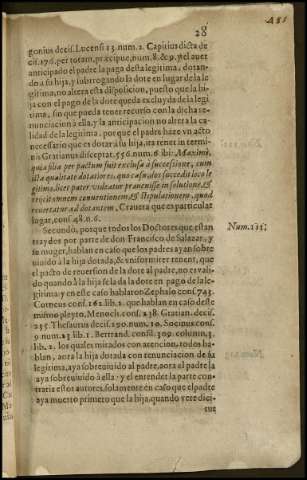 28
gonius decis. Lucensi 13. num. 2. Capitius dicta de
cis. 176. per totam, præcipue, num. 8. & 9. y el auer
anticipado el padre la paga desta legitima, dotan-
do a su hija, y subrrogando la dote en lugar de la le
gitima, no altera esta disposicion, puesto que la hi
ja con el pago de la dote queda excluyda de la legi
tima, sin que pueda tener recurso con la dicha re-
nunciacion à ella, y la anticipacion no altera la ca
lidad de la legitima, porque el padre haze vn acto
necessario que es dotar à su hija, ita tenet in termi-
nis Gratianus discept. 556. num. 6. ibi: Maximè,
quia filia per pactum fuit exclusa à successione, cum
ista qualitate dotationis, quo casu, dos succedit loco le
gitimæ, licet pater videatur præuenisse in solutione, &
reijcit omnem conuentionem, & stipulationem, quod
reuertatur ad dotantem, Crauera que es particular
lugar, cons. 48. n. 6.
Segundo, porque todos los Doctores que estan
traydos por parte de don Francisco de Salazar, y
su muger, hablan en caso que los padres ayan sobre
uiuido à la hija dotada, & vniformiter tenent, que
el pacto de reuersion de la dote al padre, no es vali-
do quando à la hija se la da la dote en pago de sa le-
gitima: y en este caso hablaron Zephalo cons. 743.
Corneus cons. 162. lib. 2. que hablan en caso deste
mismo pleyto, Menoch. cons. 238. Gratian. decis.
235. Thesaurus decis. 190. num. 10. Socinus cons.
9. num. 23. lib. 1. Bertrand. cons. 309. column. 3.
lib. 2. los quales mirados con atencion, todos ha-
blan, aora la hija dotada con renunciacion de su
legitima, aya sobreuiuido al padre, aora el padre la
aya sobreuiuido à ella: y el entender la parte con-
traria estos autores, solamente en caso que el padre
aya muerto primero que la hija, quando vere dici-
tur
Num. 111.